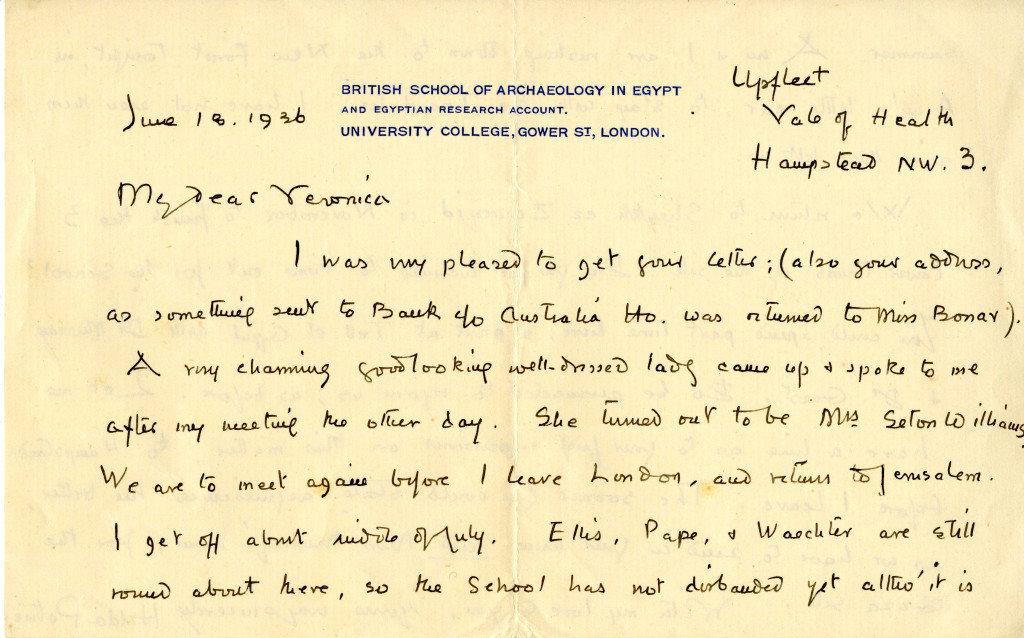 BRITISH SCHOOL OF ARCHAEOLOGY IN EGYPT
AND EGYPTIAN RESEARCH ACCOUNT.
UNIVERSITY COLLEGE, GOWER ST, LONDON.
June 18. 1936
Upfleet
Vale of Health
Hampstead NW. 3.
My dear Veronica
I was very pleased to get your letter; (also your address,
as something sent to Bank c/o Australia Ho. was returned to Miss Bonar).
A very charming goodlooking well-dressed lady came up & spoke to me
after my meeting the other day. She turned out to be Mrs Seton Williams
We are to meet again before I leave London, and return to Jerusalem.
I get off about middle of July. Ellis, Pape, & Waechter are still
round about here, so the School has not disbanded yet altho' it is